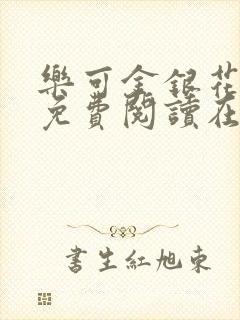 樂可金銀花
免費閱讀在
書生紅旭東